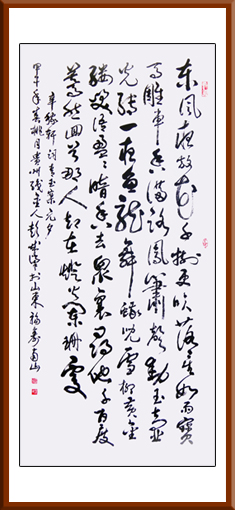 东风夜放花千树更吹落星如雨宝
马雕车香满路凤箫声动玉壶
光转一夜鱼龙舞蛾儿雪柳黄金
缕笑语盈盈暗香去众里寻他千百度
蓦然回首那人却在灯火阑珊处
辛稼轩词青玉案元夕
甲午年春桃月贵州人彭于山东福寿南山